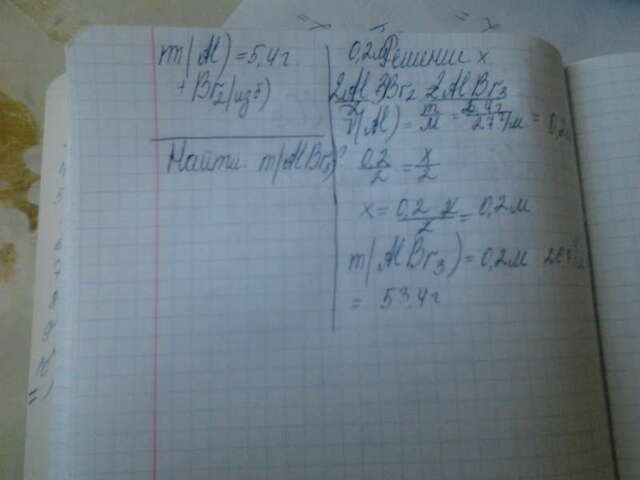 m(Al) = 5,4 г
+ Br2(изб)
Найти m(AlBr3)?
0,2м Решение x
2Al 3Br2 2AlBr3
ν(Al) = m/M = 5,4г/27г/м = 0,2
0,2/2 = x/2
x = 0,2 · 2/2 = 0,2м
m(AlBr3) = 0,2м 267
= 53,4г